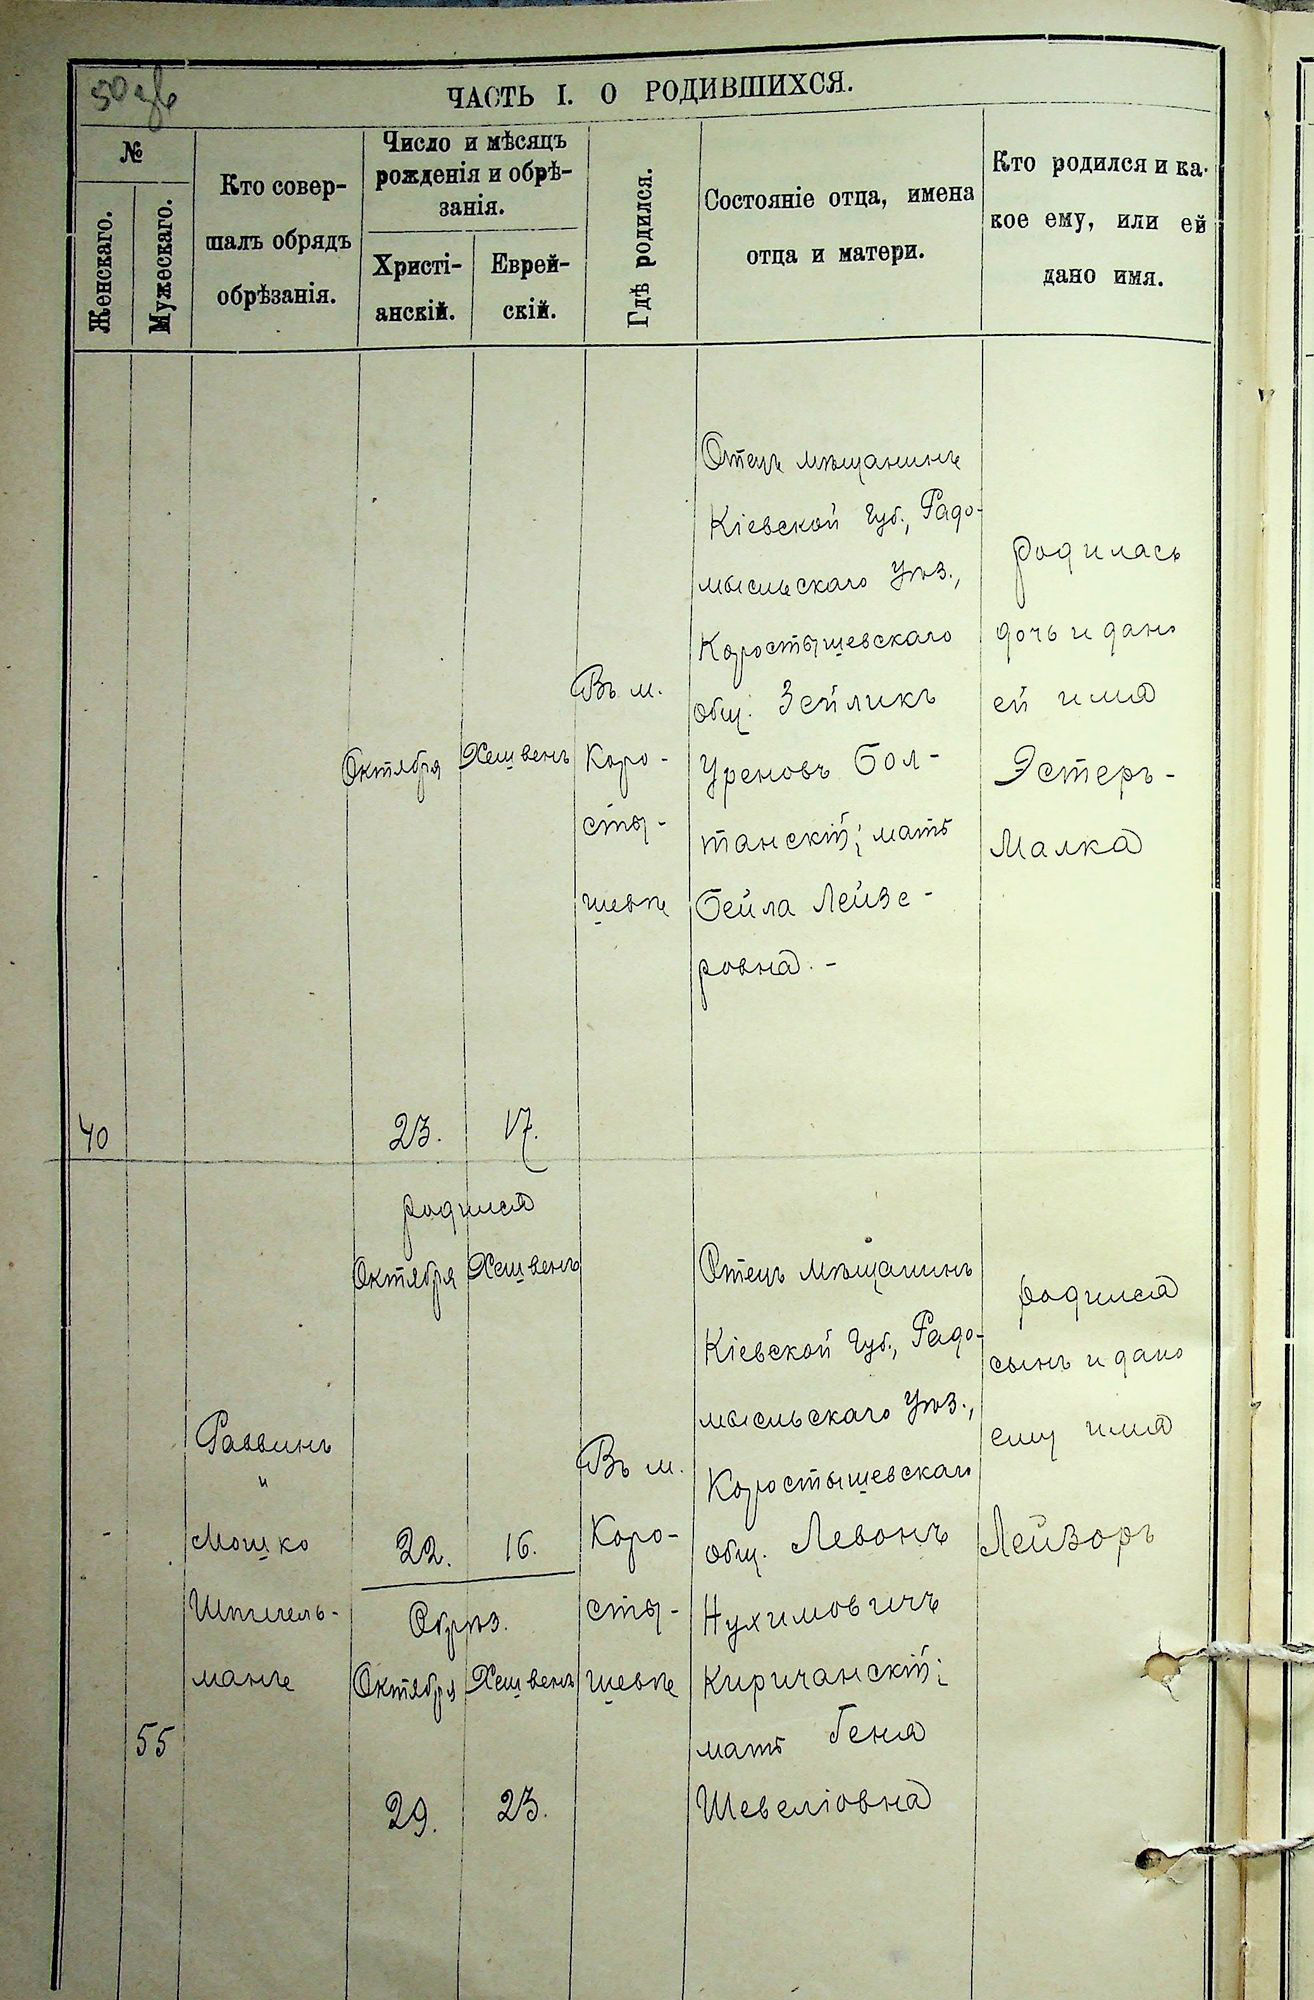 50 зв
ЧАСТЬ I. О РОДИВШИХСЯ.
№
Женскаго.
Мужескаго.
Кто совер-
шалъ обрядъ
обрѣзанія.
Число и мѣсяцъ
рожденія и обрѣ-
занія.
Христі-
анскій.
Еврей-
скій.
Гдѣ родился.
Состояніе отца, имена
отца и матери.
Кто родился и ка-
кое ему, или ей
дано имя.
40
Октября
23.
Хешвенъ
17.
Въ м.
Коро-
сты-
шевѣ
Отецъ мѣщанинъ
Кіевской Губ., Радо-
мысльскаго Уѣз.,
Коростышевскаго
общ. Зейликъ
Уреновъ Бол-
танскій; мать
Бейла Лейзе-
ровна. -
родилась
дочь и дано
ей имя
Эстеръ-
Малка
55
Раввинъ
и
Мошко
Шпигель-
манъ
родился
Октября
Хешвенъ
22.
16.
Обрѣз.
Октября
Хешвенъ
29.
23.
Въ м.
Коро-
сты-
шевѣ
Отецъ мѣщанинъ
Кіевской Губ., Радо-
мысльскаго Уѣз.,
Коростышевскаго
общ. Левонъ
Нухимовичъ
Киричанскій;
мать Геня
Шевеліовна
родился
сынъ и дано
ему имя
Лейзоръ